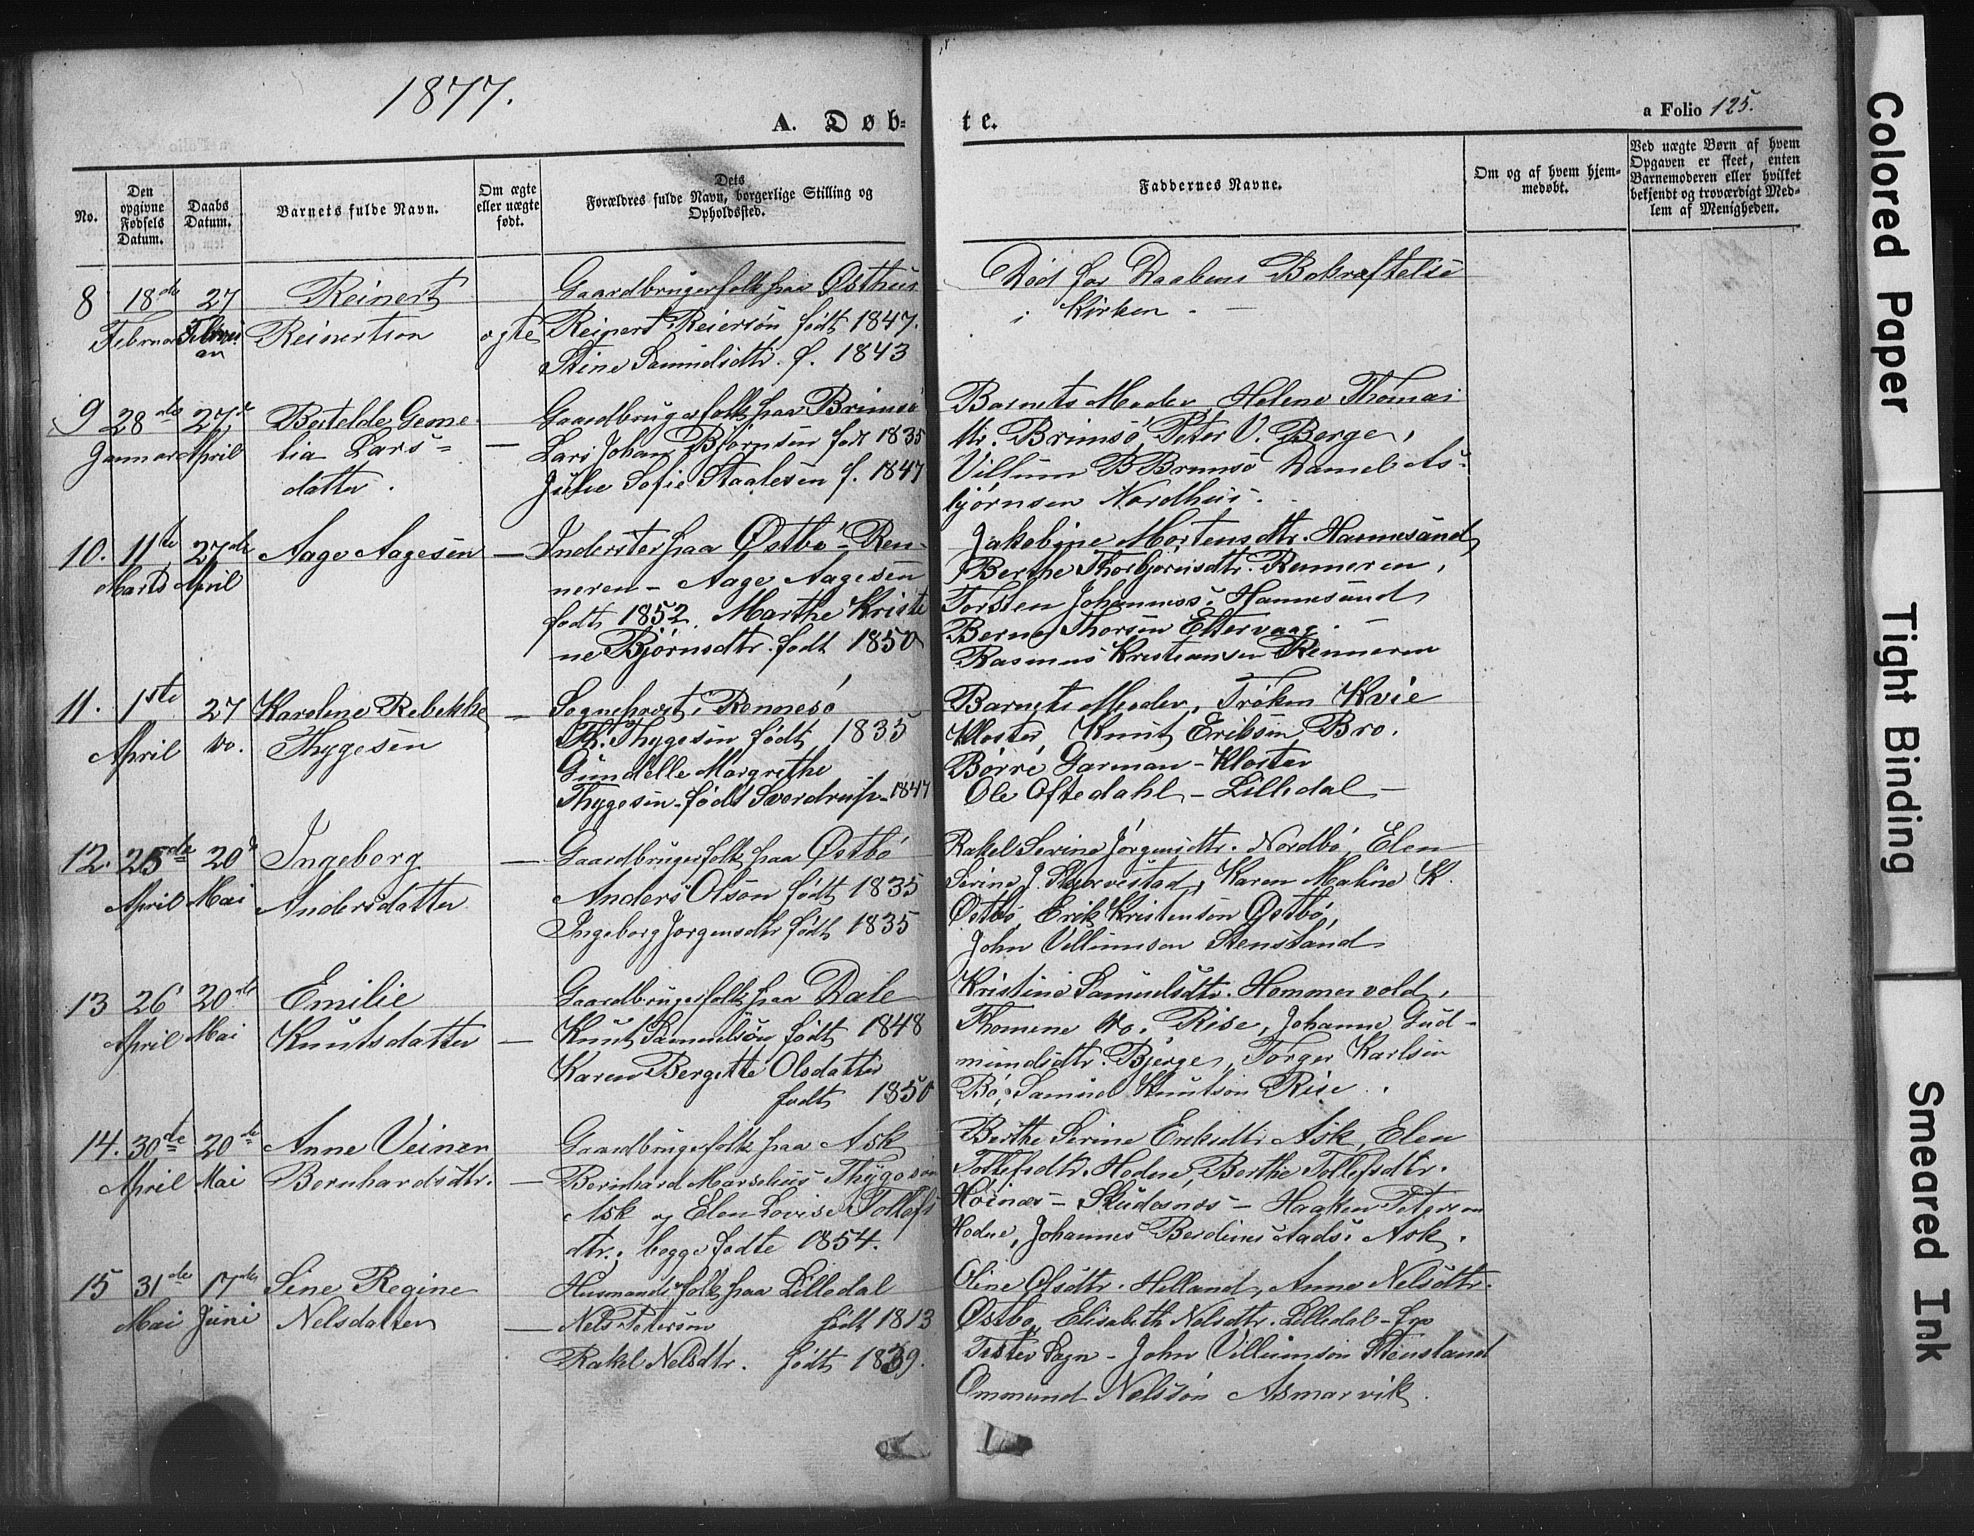 1877.
A. Døb-
te.
a Folio 125.
No.
Den opgivne Fødsels Datum.
Daabs Datum.
Barnets fulde Navn.
Om ægte eller uægte født.
Dets Forældres fulde Navn, borgerlige Stilling og Opholdssted.
Faddernes Navne.
Om og af hvem hjem-
medøbt.
Ved uægte Børn af hvem
Opgaven er skeet, enten
Barnemoderen eller hvilket
bekjendt og troværdigt Med-
lem af Menigheden.
8 18de 27 Reinert Gaardbrugerfolk paa Østhus
Februar Reinertsen ægte Reinert Reiersön født 1847.
Stine Samuelsdtr. f. 1843
Död før Daabens Bekræftelse
i Kirken. –
9 28de 27de Bertelde Geme-
lia Lars-
datter.
Januar April
— Gaardbrugerfolk paa Brimsö
Lars Johan Bjørnsen født 1835
Julie Sofie Staalesen f. 1847
Barnets Moder, Helene Thomas
dtr. Brimsö, Peter V. Berge,
Villum B Brimsö Daniel As-
bjørnsen Nordhus.
10. 11te 27de Aage Aagesen — Inderster paa Østbö- Ren-
Marts April
neren – Aage Aagesen
født 1852. Marthe Kristi
ne Bjørnsdtr. født 1850
Jakobine Mortensdtr. Hannesand,
Berthe Thorbjørnsdtr. Renneren,
Torsten Johannes: Hannesund
Berne Thorsen Eltervaag. –
Rasmus Kristiansen Renneren
11. 1ste 27 Karoline Rebekka
April do. Thygesen
— Sogneprest i Rennesö
Th. Thygesen født 1835
Gundelle Margrethe
Thygesen født Sverdrup 1847
Barnets Moder, Frøken Kvie
Kloster Knut Eriksen Bro.
Börre Garman – Kloster
Ole Oftedahl – Lilledal –
12. 25de 20d Ingeborg
April Mai Andersdatter
— Gaardbrugerfolk paa Østbö
Anders Olsön født 1835
Ingeborg Jørgensdtr født 1835
Rakel Serine Jörgensdtr. Nordbö, Elen
Serine J. Karen Maline K.
Østbö Erik Kristensön Østbö,
John Villumson Stensland
13 26 20de Emilie
April Mai Knutsdatter
— Gaardbrugerfolk paa Dale
Knut Samuelsön født 1848
Karen Bergitte Olsdatter
født 1850
Kristine Samuelsdtr. Hommervold,
Thomene do. Rise, Johanne Gud-
mundsdtr. Bjerge, Torger Karlsen
Bö, Samuel Knutson Rise.
14. 30de 20de Anne Veinen
April Mai Bernhardsdtr.
— Gaardbrugerfolk paa Ask
Bernhard Marselius Thygeson
Ask og Elen Lovise Tollefs
dtr.; begge fødte 1854.
Berthe Serine Eriksdtr Ask, Elen
Tollefsdtr. Hodne, Berthe Tollefsdtr.
Høinæs – Skudesnes – Haaken Petersen
Hodne, Johannes Berdines Aads: Ask.
15 31de 17de Sine Regine
Mai Juni Nelsdatter
— Husmandsfolk paa Lilledal
Nels Peterson født 1813
Rakel Nelsdtr. født 1839.
Oline Olsdtr. Helland, Anne Nelsdtr.
Østbö, Elisabeth Nelsdtr. Lilledal – fra
John Villumsön Stensland
Ommund Nelsön Asmarvik.
Colored Paper
Tight Binding
Smeared Ink